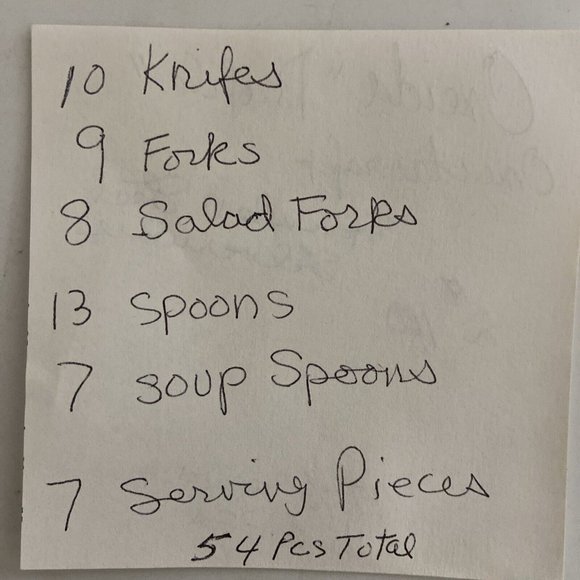 10 Knifes
9 Forks
8 Salad Forks
13 spoons
7 soup Spoons
7 Serving Pieces
54 Pcs Total